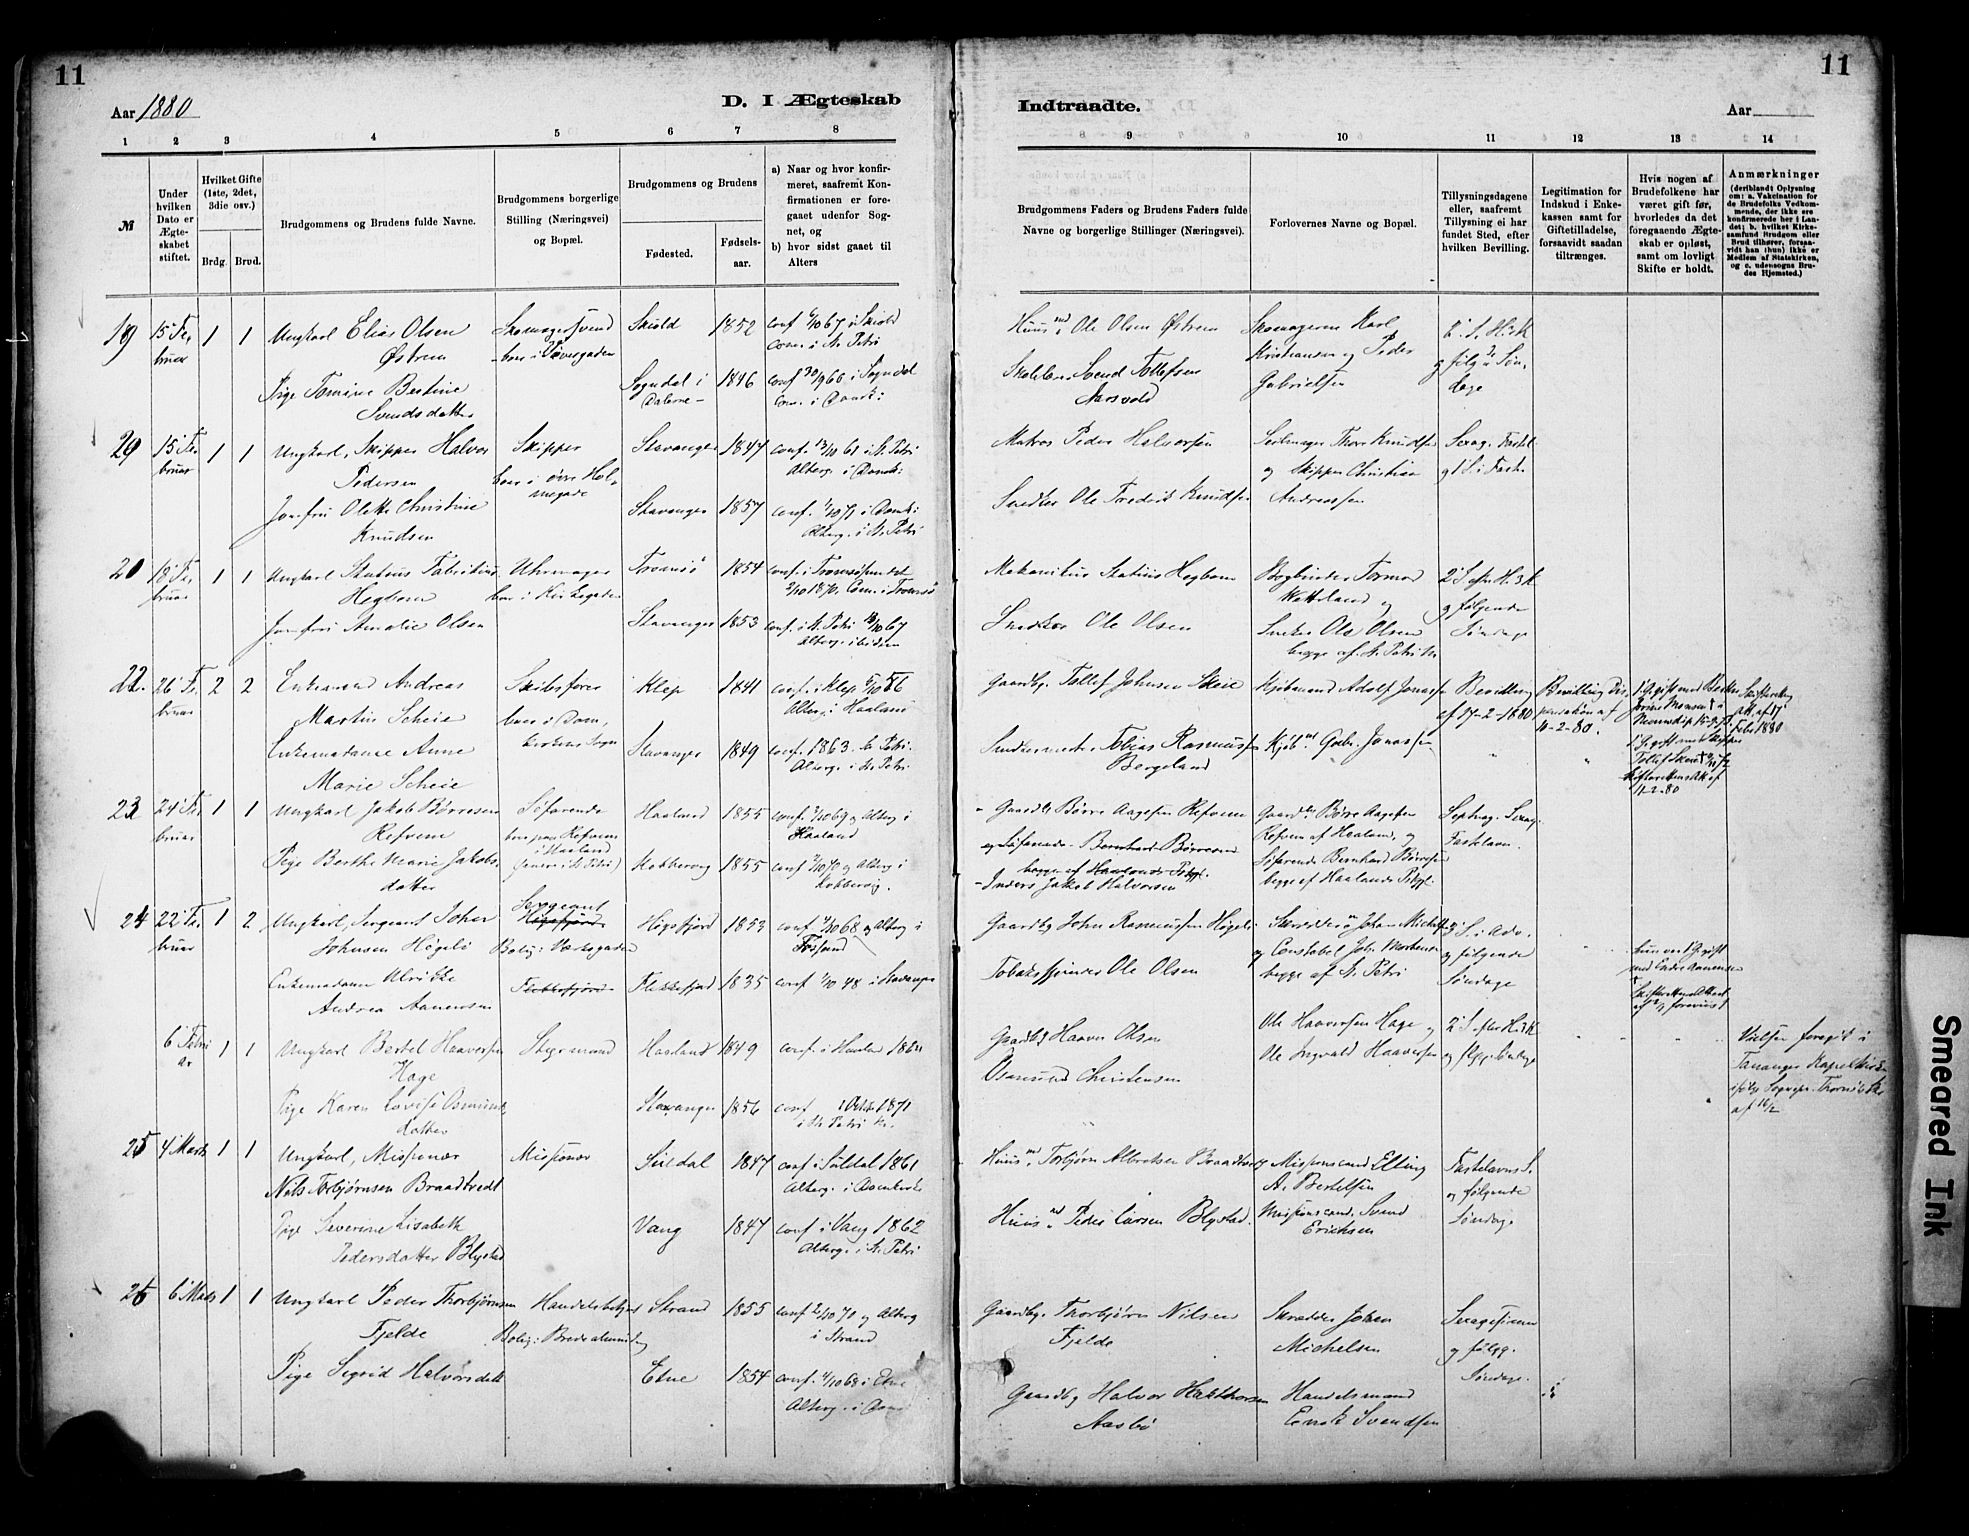 11
11
Aar 1880
D. I Ægteskab
Indtraadte.
Aar
1 2 3 4 5 6 7 8
8 9 10 11 12 13 14
№
Under hvilken Dato er Ægteskabet stiftet.
Hvilket Gifte (1ste, 2det, 3die osv.)
Brdg. Brud.
Brudgommens og Brudens fulde Navne.
Brudgommens borgerlige Stilling (Næringsvei) og Bopæl.
Brudgommens og Brudens
Fødested.
Fødselsaar.
a) Naar og hvor konfirmeret, saafremt Konfirmationen er foregaaet udenfor Sognet, og
b) hvor sidst gaaet til Alters
Brudgommens Faders og Brudens Faders fulde Navne og borgerlige Stillinger (Næringsvei).
Forlovernes Navne og Bopæl.
Tillysningsdagene eller, saafremt Tillysning ei har fundet Sted, efter hvilken Bevilling.
Legitimation for Indskud i Enkekassen samt for Giftetilladelse, forsaavidt saadan tiltrænges.
Hvis nogen af Brudefolkene har været gift før, hvorledes da det foregaaende Ægteskab er opløst, samt om lovligt Skifte er holdt.
Anmærkninger
(deriblandt Oplysning om: a. Vakcination for de Brudefolks Vedkommende, der ikke ere konfirmerede her i Landet; b. hvilket Kirkesamfund Brudgom eller Brud tilhører, forsaavidt han (hun) ikke er Medlem af Statskirken, og c. udensogns Brudes Hjemsted.)
19 15 Februar 1 1 Ungkarl Elias Olsen Østrem
Skomagersvend
Skiold 1852 conf 1/10 67 i Skiold
Com. i St. Petri
Huusmd. Ole Olsen Østrem
Skomagerne Karl Kristiansen og Peder Gabrielsen
og følg. Søndage
Pige Tomine Bertine Svendsdatter
Sogndal i Dalerne 1846 conf 30/9 60 i Sogndal
Com. i Domk:
Skolelærer Svend Tollefsen Aarsvold
20 15 Februar 1 1 Ungkarl, Skipper Halvor Pedersen
Skipper
boer i øvre Holmegade
Stavanger 1847 conf. 13/10 61 i St. Petri
Alterg. i Domk:
Matros Peder Halvorsen
Seilmager Thore Knudsen og Skipper Christian Andreassen
Sexag. Fastel. og 1 S. i Faste
Jomfru Olette Christine Knudsen
Stavanger 1857 conf. 1/10 71 i Domk:
Alterg. i St. Petri
Snedker Ole Fredrik Knudsen
18 Februar 1 1 Ungkarl Statius Fabritius Hegbom
Uhrmager
boer i Kirkegaden
Tromsø 1854 conf. i Tromsøsundet
2/10 1870. Com. i Tromsø
Mekanikus Statius Hegbom
Bogbinder Tormod Watteland og
Snedker Ole Olsen
begge af St. Petri M.
2 S. efter H. 3 K. og følgende Søndage
Jomfru Amalie Olsen
Stavanger 1853 conf. i St. Petri 13/10 67
Alterg. ibidem
Snedker Ole Olsen
22. 26 Februar 2 2 Enkemand Andreas Martin Scheie
Skibsfører
boer i Domkirkens Sogn
Klep 1841 conf. i Klep 5/10 56
Alterg. i Haaland
Gaardbr. Tollef Johnsen Skeie
Kjøbmand Adolf Jonassen
Bevilling af 17-2-1880
Bevilling Dispensation af 14-2-80.
Enkemadame Anne Marie Scheie
Stavanger 1849 conf. 1863. St. Petri.
Alterg. i St. Petri
Snedkermester Tobias Rasmussen Bergeland
Kjøbmd. Gabr. Jonassen
23 24 Februar 1 1 Ungkarl Jakob Børresen Refvem
Søfarende
boer paa Refvem i Haaland
Haaland 1855 conf. 3/10 69 og Alterg i Haaland
Gaardbr Børre Aagesen Refvem
og Søfarende Bernhard Børresen
begge af Haalands Prgj.
Gaardbr. Børre Aagesen Refvem af Haaland, og
Søfarende Bernhard Børresen
begge af Haalands Prgj.
Septuag. Sexag. Fastelavn.
Pige Berthe Marie Jakobsdatter
Kobbervig 1855 conf. 2/10 70 og Alterg i Kobbervig.
Inders. Jakob Halvorsen
24 22 Februar 1 2 Ungkarl, Sergeant Johan Johnsen Høgeli
Sergeant
Høgsfjord
Bolig: Værksgaden
Høgsfjord 1853 conf 4/10 68 og Alterg i Fossand
Gaardbr John Rasmussen Høgeli
Skræddermr. Johan Michelsen
og Constabel Joh. Mortensen
begge af St. Petri
3 S. i Adv. og følgende Søndage
Enkemadam Ulrikke Andrea Aanensen
Flekkefjord
Flekkefjord 1835 conf 1/10 48 i Stavanger
Tobakspinder Ole Olsen
6 Februar 1 1 Ungkarl Bertel Haaversen Hage
Styrmand
Haaland 1849 conf. i Haaland 1864
Gaardbr Haaver Olsen
Ole Haaversen Hage og
Ole Ingvald Haaversen
2 S. efter H. 3 K. og flgg. Søndage
Vielsen foregik i Tananger Kapelkirke
af 16/2
Pige Karen Lovise Osmundsdatter
Stavanger 1856 conf 1 Octbr 1871
i St. Petri K.
Osmund Christensen
25 4 Marts 1 1 Ungkarl, Missionær
Nils Torbjørnsen Braadtvedt
Missionær
Suldal 1847 conf. i Suldal 1861
Alterg. i Domkirke
Huusmd. Torbjørn Albretsen Braadtvedt
Missionscand. Elling A. Bertelsen
Fastelavns S. og følgende Søndage
Pige Severine Lisabeth Pedersdatter Blystad
Vang 1847 conf i Vang 1862
Alterg. i St. Petri
Huusmd. Peder Larsen Blystad.
Missionscand. Svend Eriksen
26 6 Marts 1 1 Ungkarl Peder Thorbjørnsen Fjelde
Handelsbetjent
Bolig: Bredealmending
Strand 1855 conf 2/10 70 og Alterg i Strand
Gaardbr. Thorbjørn Nilsen Fjelde
Skrædder Johan Michelsen
Sexagesima og følgg. Søndage.
Pige Sigrid Halvorsdatt
Etne 1854 conf. 4/10 68 i Etne
Alterg. i Domk
Gaardbr Halvor Hakthorsen Aasbø
Handelsmand Enok Svendsen
Smeared Ink